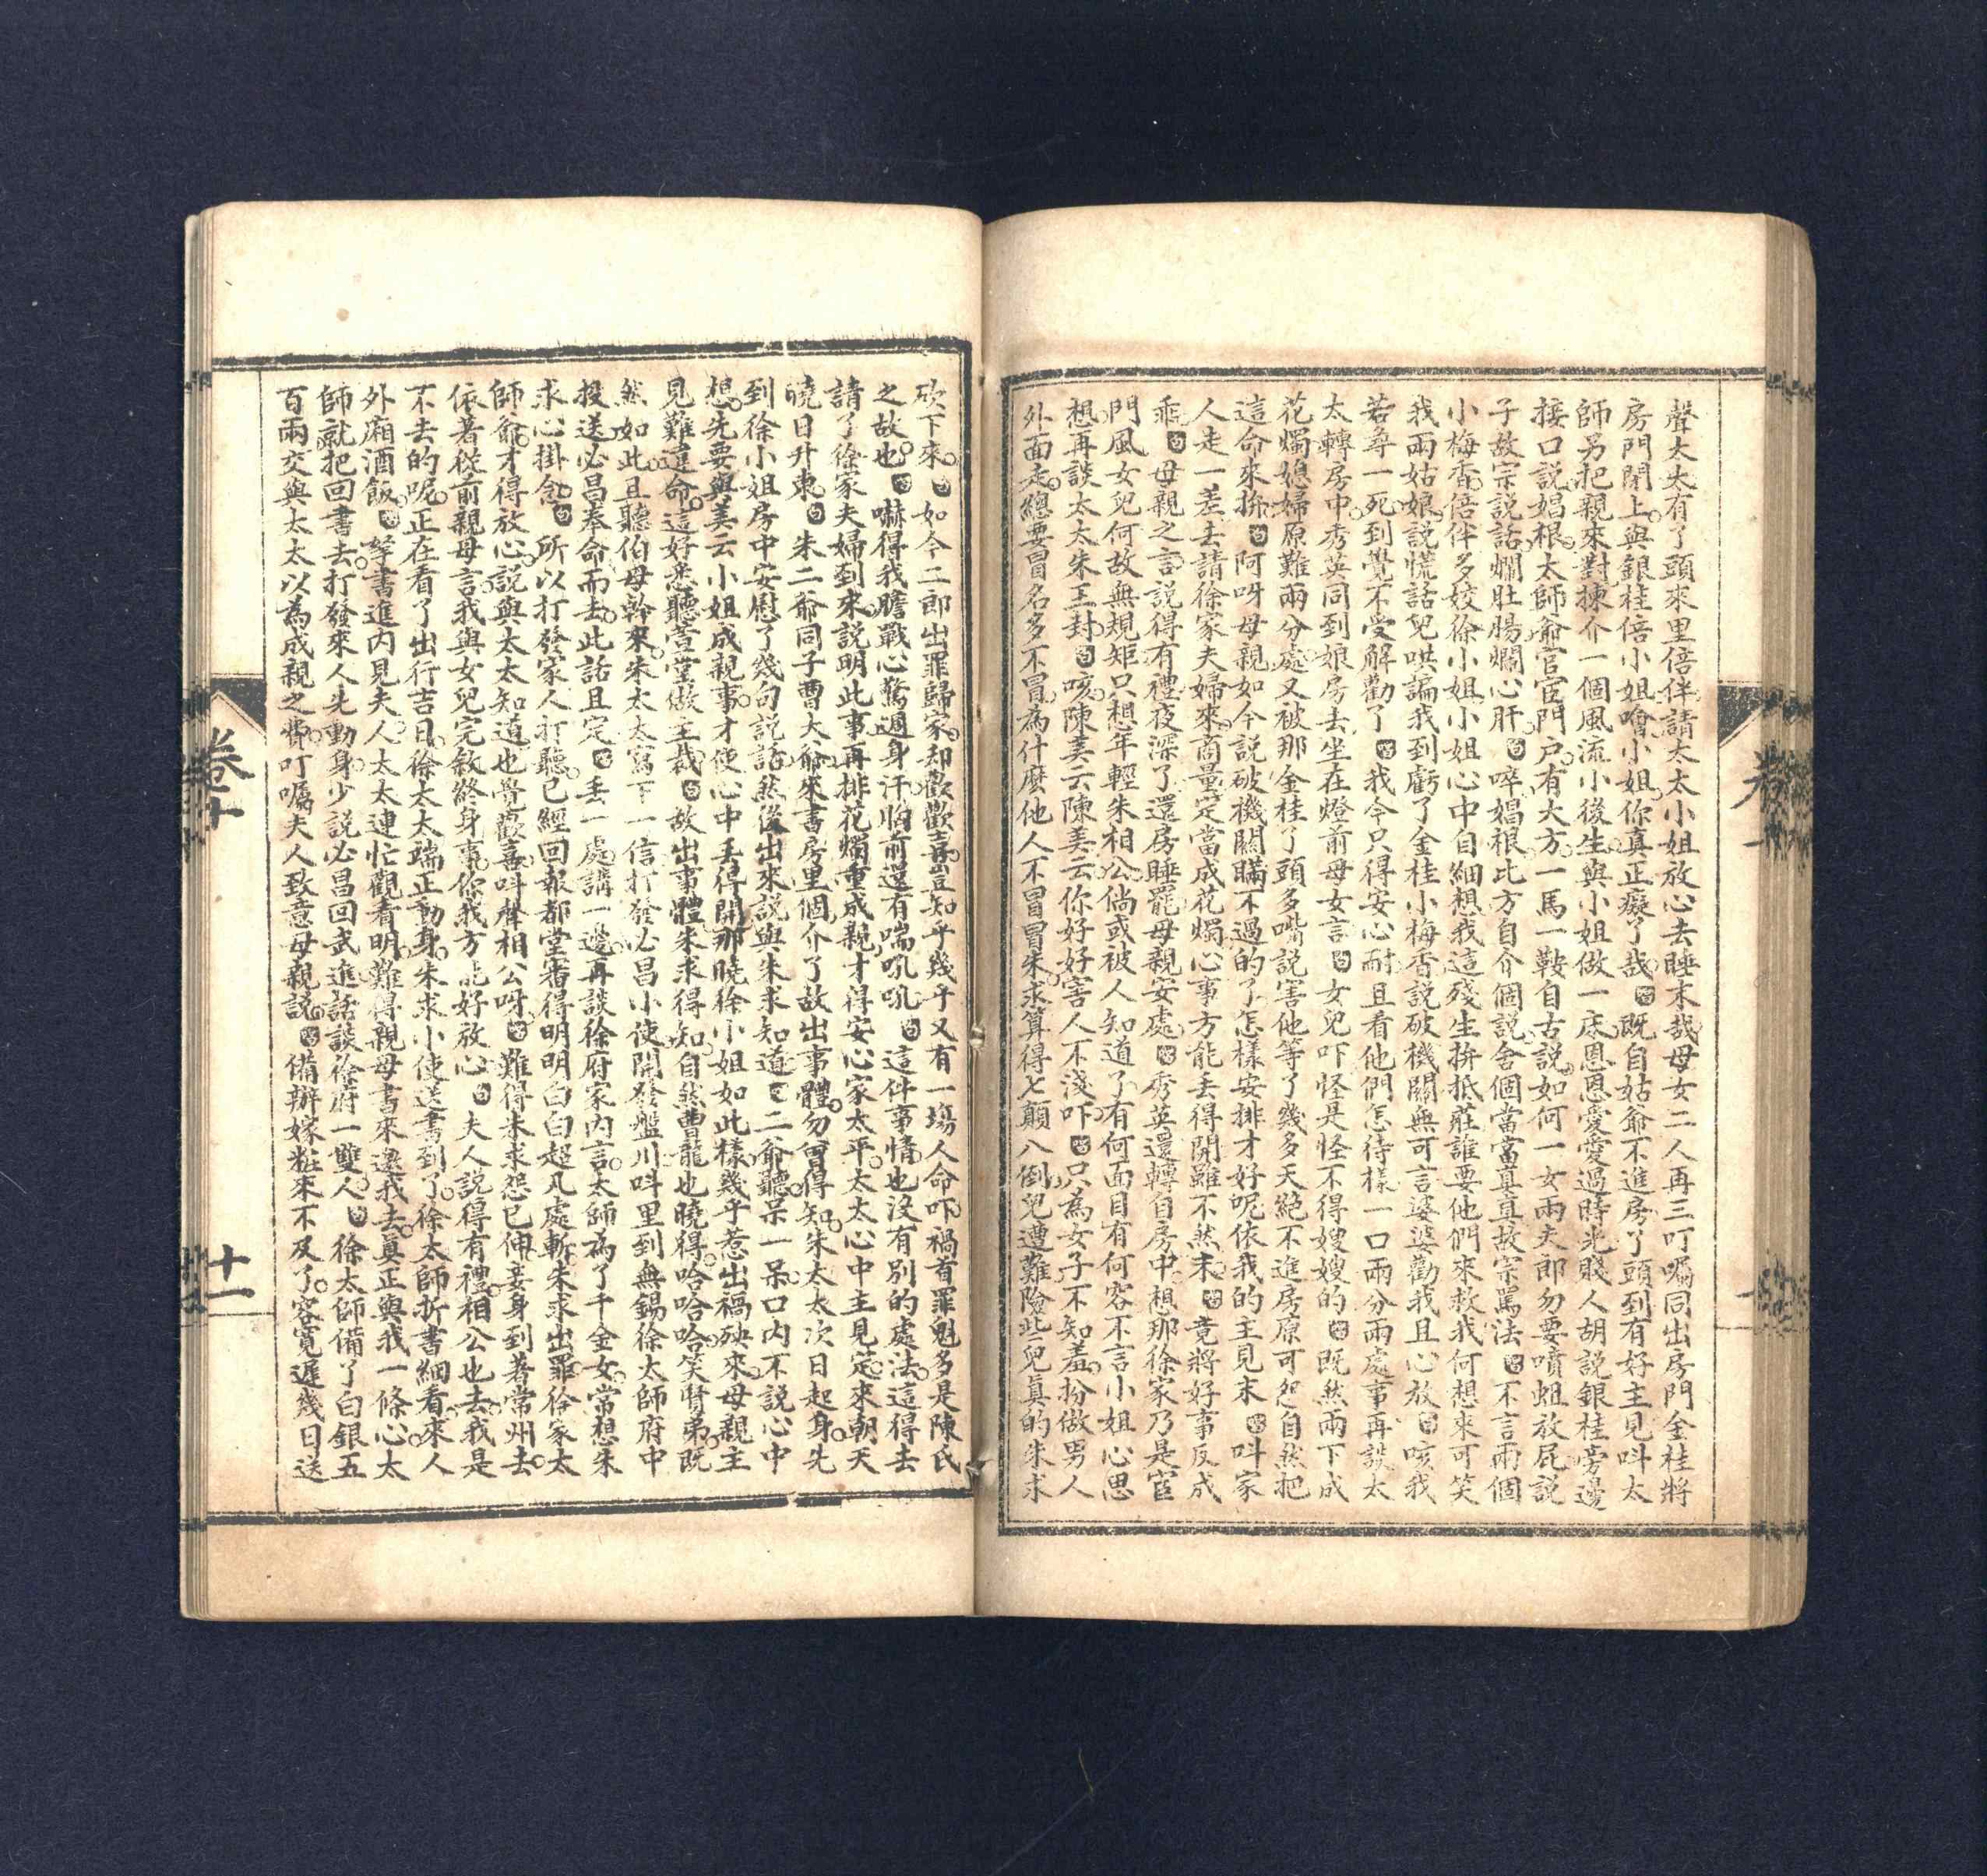 聲太太有了頭來里倍伴請太太小姐放心去睡末哉母女二人再三叮嘱同出房門金桂將
房門閉上與銀桂倍小姐噲小姐你真正癡了哉白既自姑爺不進房了頭到有好主見呌太
師另把親來對揀介一個風流小後生與小姐做一床恩恩愛愛過時光賤人胡説銀桂旁邊
接口説娼根太師爺官宦門户有大方一馬一鞍自古説如何一女兩夫郎勿要噴蛆放屁説
子故宗説話爛肚腸爛心肝白啐娼根比方自介個説舍個當當真直故宗罵法白不言兩個
小梅香倍伴多姣徐小姐小姐心中自細想我這殘生拚抵莊誰要他們來救我何想來可笑
我兩姑娘説慌話兒哄諞我到虧了金桂小梅香説破機關無可言婆婆勸我且心放白咳我
若尋一死到覺不受解勸了白我今只得安心耐且看他們怎待樣一口兩分兩處事再談太
太轉房中秀英同到娘房去坐在燈前母女言白女兒吓怪是怪不得嫂嫂的白既然兩下成
花燭媳婦原難兩分處又被那金桂了頭多嘴説害他等了幾多天絕不進房原可怨自然把
這命來拚白阿呀母親如今説破機關瞞不過的了怎樣安排才好呢依我的主見末白呌家
人走一差去請徐家夫婦來商量定當成花燭心事方能丢得開雖不然末白竟將好事反成
乖白母親之言説得有禮夜深了還房睡罷母親安處白秀英還轉自房中想那徐家乃是宦
門風女兒何故無規矩只想年輕朱相公倘或被人知道了有何面目有何容不言小姐心思
想再談太太朱王封白咳陳美云陳美云你好好害人不淺吓白只為女子不知羞扮做男人
外面走總要冒名多不冒為什麽他人不冒冒朱求算得七顛八倒兒遭難險些兒真的朱求
卷十
砍下來白如今二郎出罪歸家却歡歡喜豈知乎幾乎又有一塲人命吓禍首罪魁多是陳氏
之故也白嚇得我膽戰心驚週身汗胸前還有喘吼吼白這件事情也沒有别的處法這得去
請了徐家夫婦到來説明此事再排花燭重成親才得安心家太平太太心中主見定來朝天
曉日升東白朱二爺同子曹大爺來書房里個介了故出事體勿曾得知朱太太次日起身先
到徐小姐房中安慰了幾句説話然後出來説與朱求知道白二爺聽呆一呆口内不説心中
想先要與美云小姐成親事才使心中丢得開那曉徐小姐如此樣幾乎惹出禍殃來母親主
見難違命這好悉聽萱堂做主裁白故出事體朱求得知自然曹龍也曉得哈哈哈笑賢弟既
然如此且聽伯母幹來朱太太寫下一信打發必昌小使開發盤川呌里到無錫徐太師府中
投送必昌奉命而去此話且定白丢一處講一邊再談徐府家内言太師為了千金女常想朱
求心掛念白所以打發家人打聽已經回報都堂審得明明白白起凡處斬朱求出罪徐家太
師爺才得放心説與太太知道也覺歡喜呌聲相公呀白難得朱求怨已伸妾身到著常州去
依著從前親母言我與女兒完敘終身事你我方能好放心白夫人説得有禮相公也去我是
不去的呢正在看了出行吉日徐太太端正動身朱求小使送書到了徐太師折書細看來人
外廂酒飯白拏書進内見夫人太太連忙觀看明難得親母書來邀我去真正與我一條心太
師就把回書去打發來人先動身少説必昌回武進話談徐府一雙人白徐太師備了白銀五
百兩交與太太以為成親之費叮嘱夫人致意母親説白備辦嫁粧來不及了容寬遲幾日送
卷十
十一